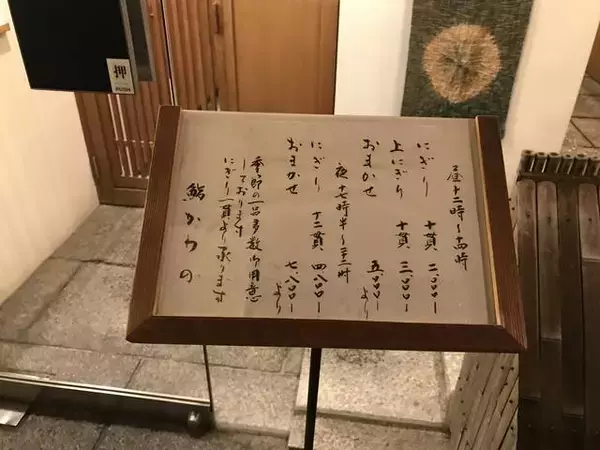 昼十二時〜十四時
にぎり 十貫 二、〇〇〇ー
上にぎり 十貫 三、〇〇〇ー
おまかせ 五、〇〇〇ーより
夜 十七時半〜二十二時
にぎり 十二貫 四、八〇〇ー
おまかせ 七、八〇〇ーより
季節の一品多数御用意
しております
にぎり一貫より承ります
鮨かわの
押